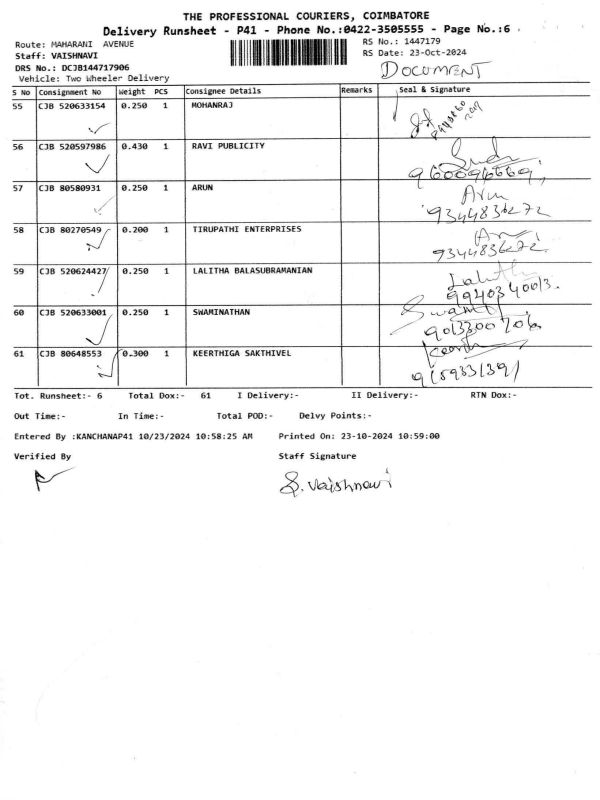 THE PROFESSIONAL COURIERS, COIMBATORE
Delivery Runsheet - P41 - Phone No.:0422-3505555 - Page No.:6
Route: MAHARANI AVENUE RS No.: 1447179
Staff: VAISHNAVI RS Date: 23-Oct-2024
DRS No.: DCJB144717906 DOCUMENT
Vehicle: Two Wheeler Delivery
S No Consignment No Weight PCS Consignee Details Remarks Seal & Signature
55 CJB 520633154 0.250 1 MOHANRAJ
56 CJB 520597986 0.430 1 RAVI PUBLICITY
57 CJB 80580931 0.250 1 ARUN Arun
9344836272
58 CJB 80270549 0.200 1 TIRUPATHI ENTERPRISES
9344836272
59 CJB 520624427 0.250 1 LALITHA BALASUBRAMANIAN
9940340013.
60 CJB 520633001 0.250 1 SWAMINATHAN
61 CJB 80648553 0.300 1 KEERTHIGA SAKTHIVEL
Tot. Runsheet:- 6 Total Dox:- 61 I Delivery:- II Delivery:- RTN Dox:-
Out Time:- In Time:- Total POD:- Delvy Points:-
Entered By :KANCHANAP41 10/23/2024 10:58:25 AM Printed On: 23-10-2024 10:59:00
Verified By Staff Signature
S. Vaishnavi